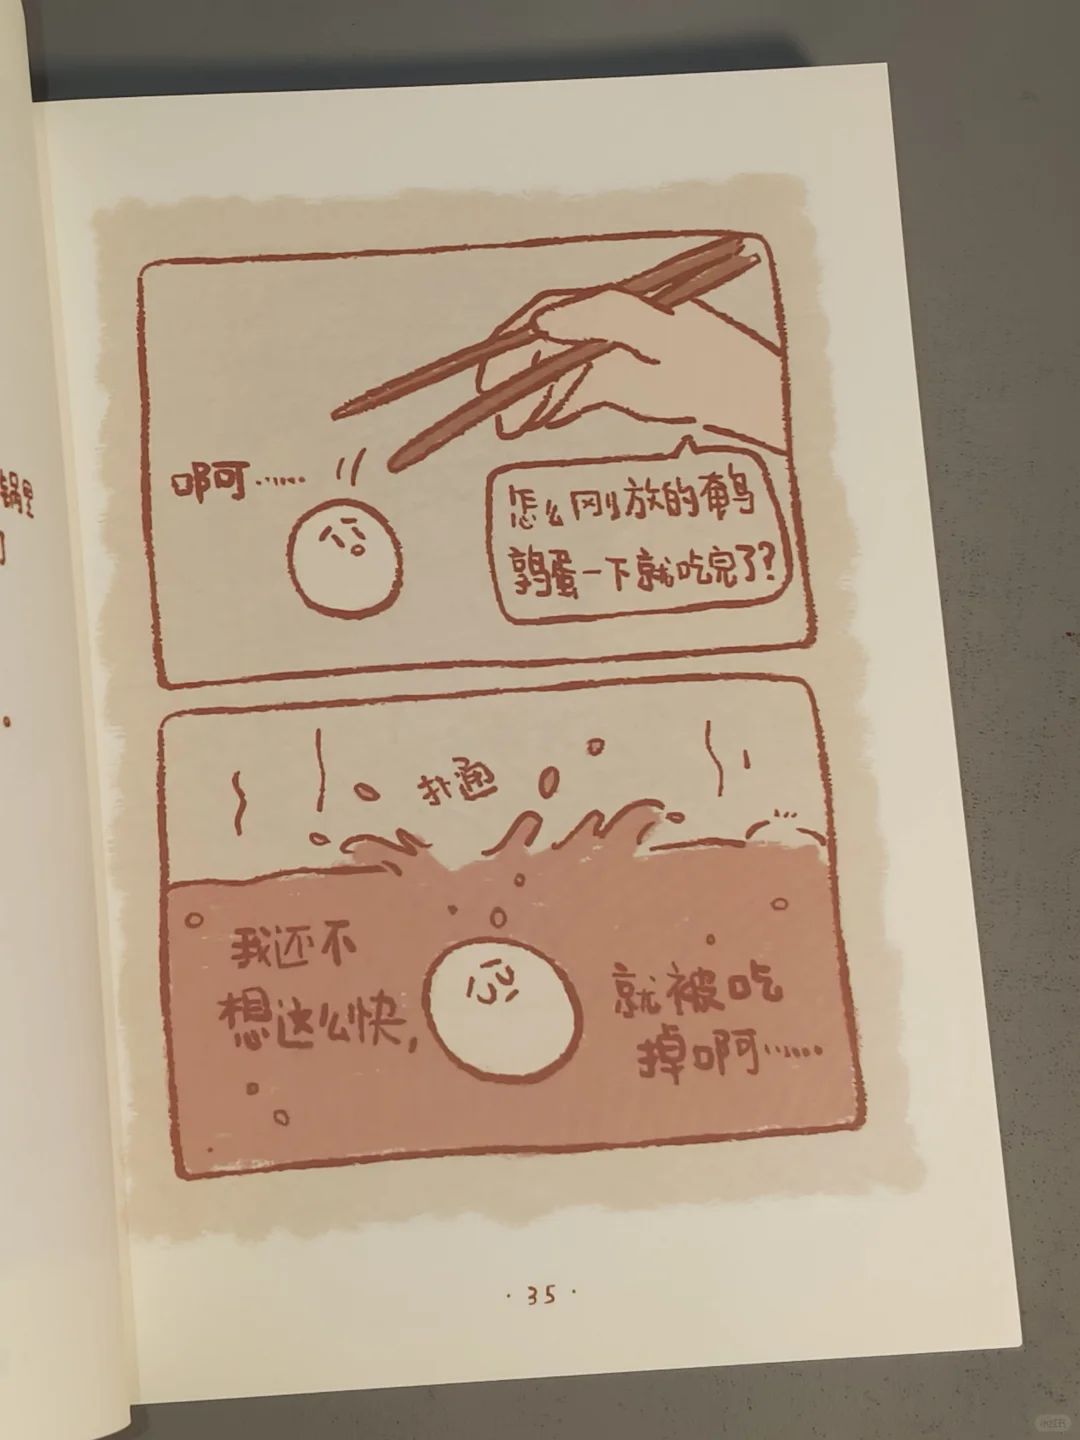 锅里
啊……
怎么刚放的鹌
鹑蛋一下就吃完了?
扑通
我还不
想这么快,
就被吃
掉啊……
·35·